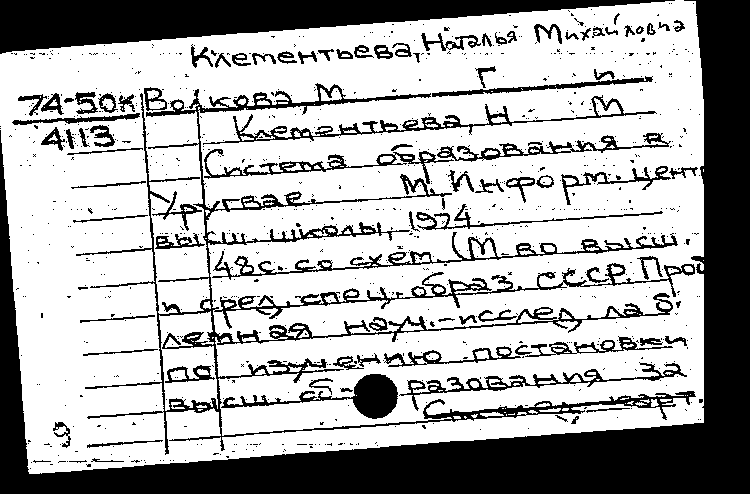 Клементьева, Наталья Михайловна
74-50к Волкова, М Г и
4113 Клементьева, Н М
Система образования в
Уругвае. М., Информ. центр
высш. школы, 1974.
48с. со схем. (М-во высш.
и сред. спец. образ. СССР. Проб
лемная науч.-исслед. лаб.
по изучению постановки
высш. об- разования за
След. карт.
9